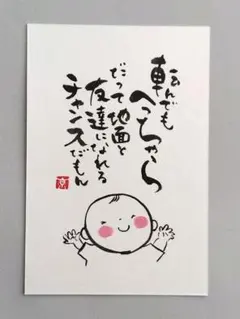 転んでも
へっちゃら
だって地面と
友達になれる
チャンスだもん
京